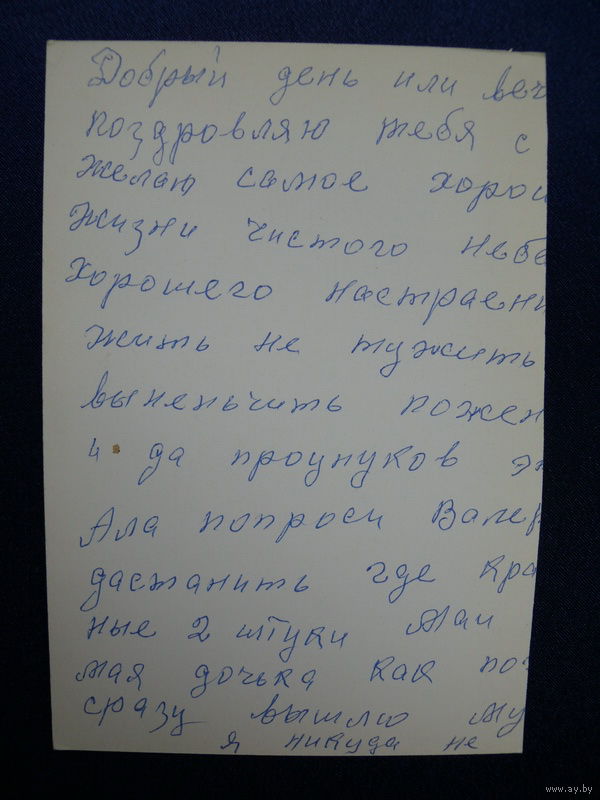 Добрый день или веч
поздровляю тебя с
желаю самое хорош
жизни чистого небе
хорошего настраени
жить не тужить
выненьчить пожен
ч да проунуков эт
Ала попроси Валер
дастанить где кра
ные 2 штуки Маи
мая дочька как по
сразу вышлю му
я никуда не
www.ay.by